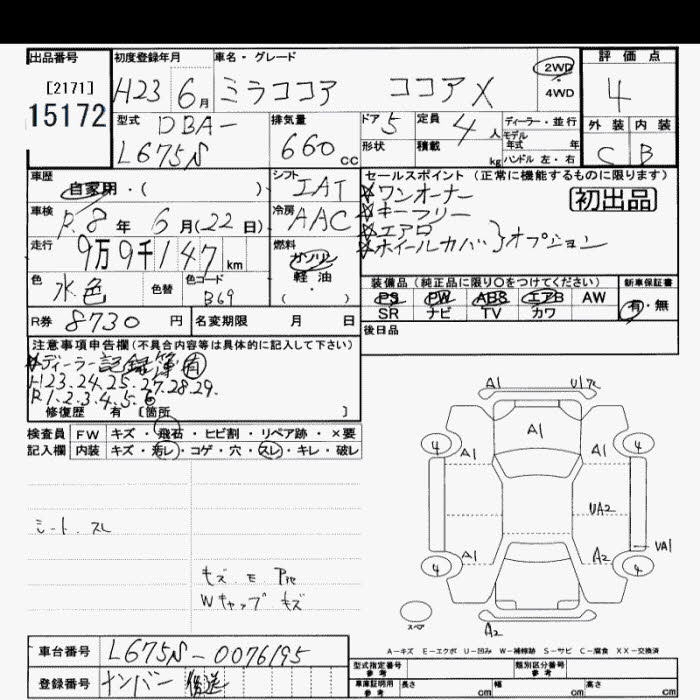 出品番号
[2171]
15172
初度登録年月
H23 6月
車名・グレード
ミラココア ココアX
2WD
・
4WD
評価点
4
型式
DBA-
L675S
排気量
660 cc
ドア 5
形状
定員 4 人
積載 kg
ディーラー・並行
モデル
年式 年
ハンドル 左・右
外装 内装
C B
車歴
自家用・( )
シフト
IAT
セールスポイント(正常に機能するものに限ります)
☆ワンオーナー
☆キーフリー
☆エアロ
☆ホイールカバー}オプション
初出品
車検
R.8年 6月(22日)
冷房
AAC
走行
9万9千147km
燃料
ガソリン
軽・油
・( )
色
水色
色替
色コード
B69
装備品(純正品に限り○をつけてください)
PS PW ABS エアB AW
SR ナビ TV カワ
新車保証書
有・無
R券 8730円
名変期限 月 日
後日品
注意事項申告欄(不具合内容等は具体的に記入して下さい)
☆ディーラー記録簿有
H23.24.25.27.28.29.
R1.2.3.4.5.6
修復歴 有 〔箇所 〕
検査員 FW キズ・飛石・ヒビ割・リペア跡・×要
記入欄 内装 キズ・汚レ・コゲ・穴・スレ・キレ・破レ
シート.スレ
キズ.E
Wキャップ キズ
A1
A1
4 A1 A1 4
UA2
VA1
4 A1 A2 4
スペア
A2
A-キズ E-エクボ U-凹み W-補修跡 S-サビ C-腐食 XX-交換済
車台番号 L675S-0076195
登録番号 ナンバー 後送
型式指定番号
参考
類別区分番号
参考
車庫証明用
参考
長さ cm 幅 cm 高さ cm